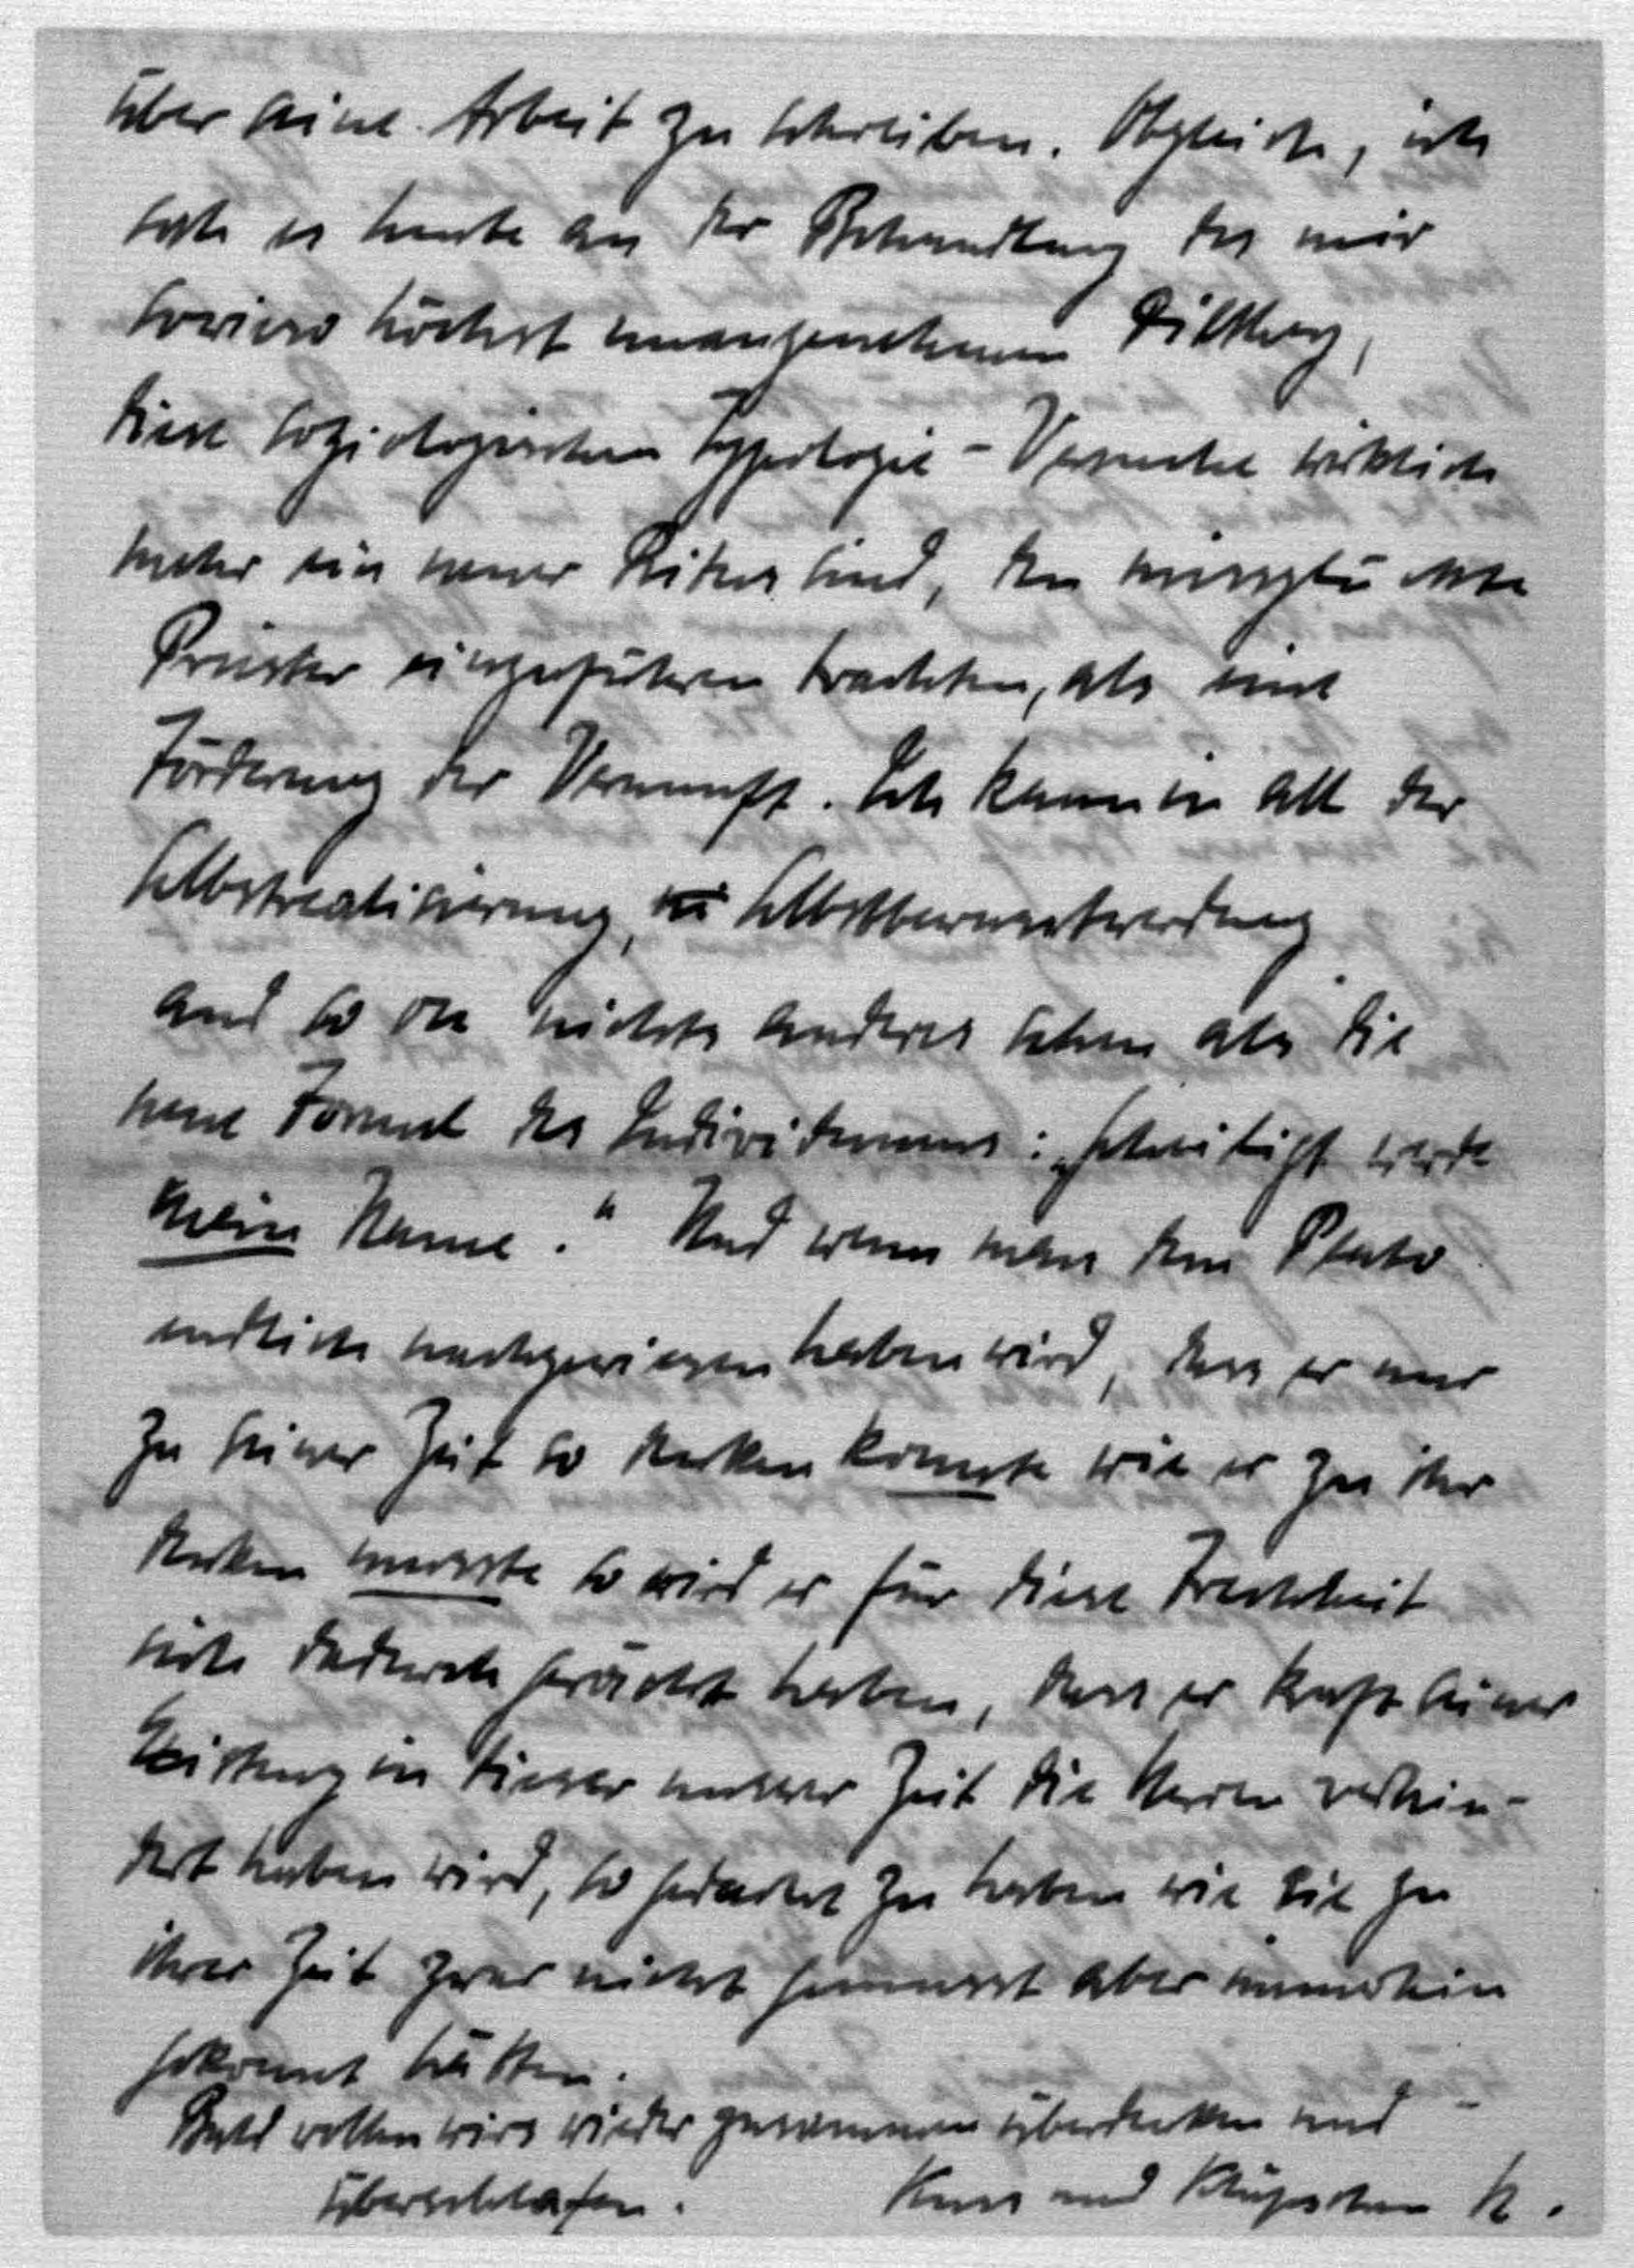 über seine Arbeit zu schreiben. Obgleich, ich
sah es heute an der Behandlung des mir
sowieso höchst unangenehmen Dilthey,
diese soziologischen Typologie-Versuche wirklich
mehr ein neuer Ritus sind, den missglückte
Priester einzuführen trachten, als eine
Förderung der Vernunft. Ich kann in all der
Selbstrealisierung, Selbstbewusstwerdung
and so on nichts anderes sehen als die
neue Formel des Individuums: „Geheiligt werde
mein Name." Und wenn man dem Plato
endlich nachgewiesen haben wird, dass er nur
zu seiner Zeit so denken konnte wie er zu ihr
denken musste so wird er für diese Frechheit
sich dadurch gerächt haben, dass er kraft seiner
Leistung in dieser unserer Zeit die Herren verhin-
dert haben wird, so gedacht zu haben wie sie zu
ihrer Zeit zwar nicht gemusst aber immerhin
gekonnt hätten.
Bald wollen wirs wieder zusammen überdenken und
überschlafen. Kuss und K.